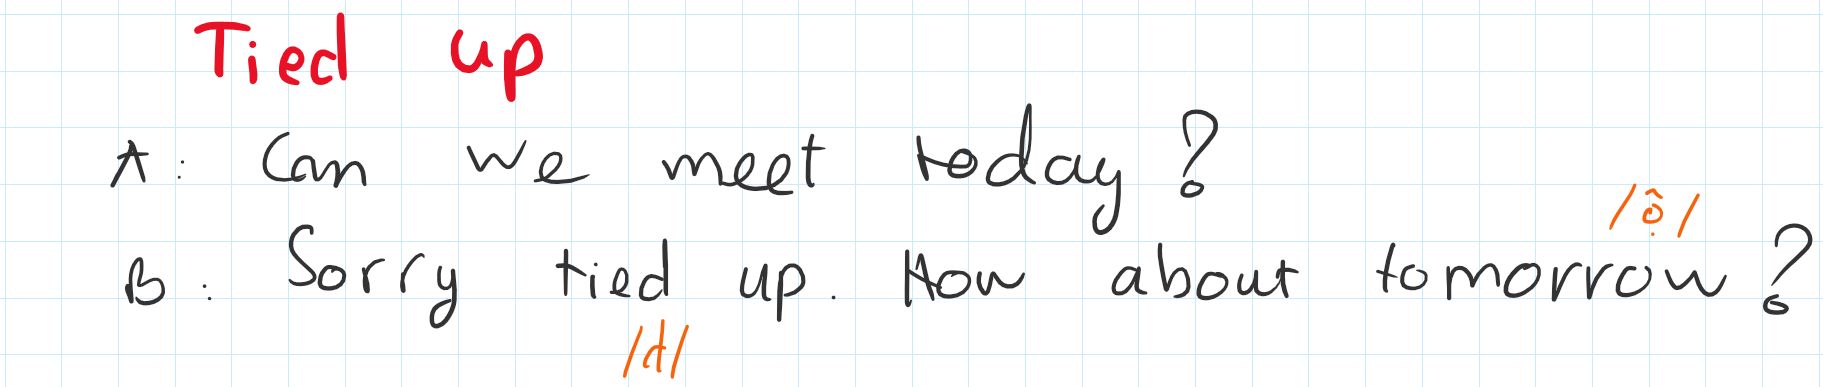 Tied up
A: Can we meet today?
/ộ/
B: Sorry tied up. How about tomorrow?
/d/